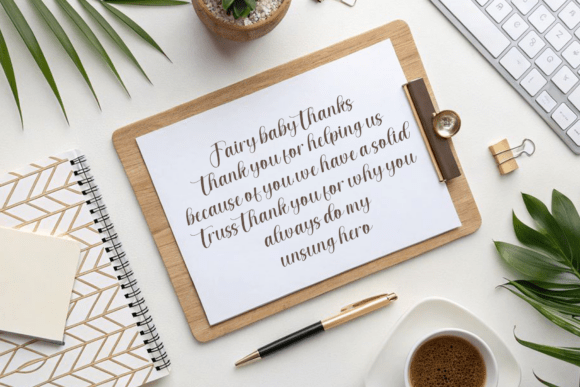 Fairy baby thanks
thank you for helping us
because of you we have a solid
truss thank you for why you
always do my
unsung hero